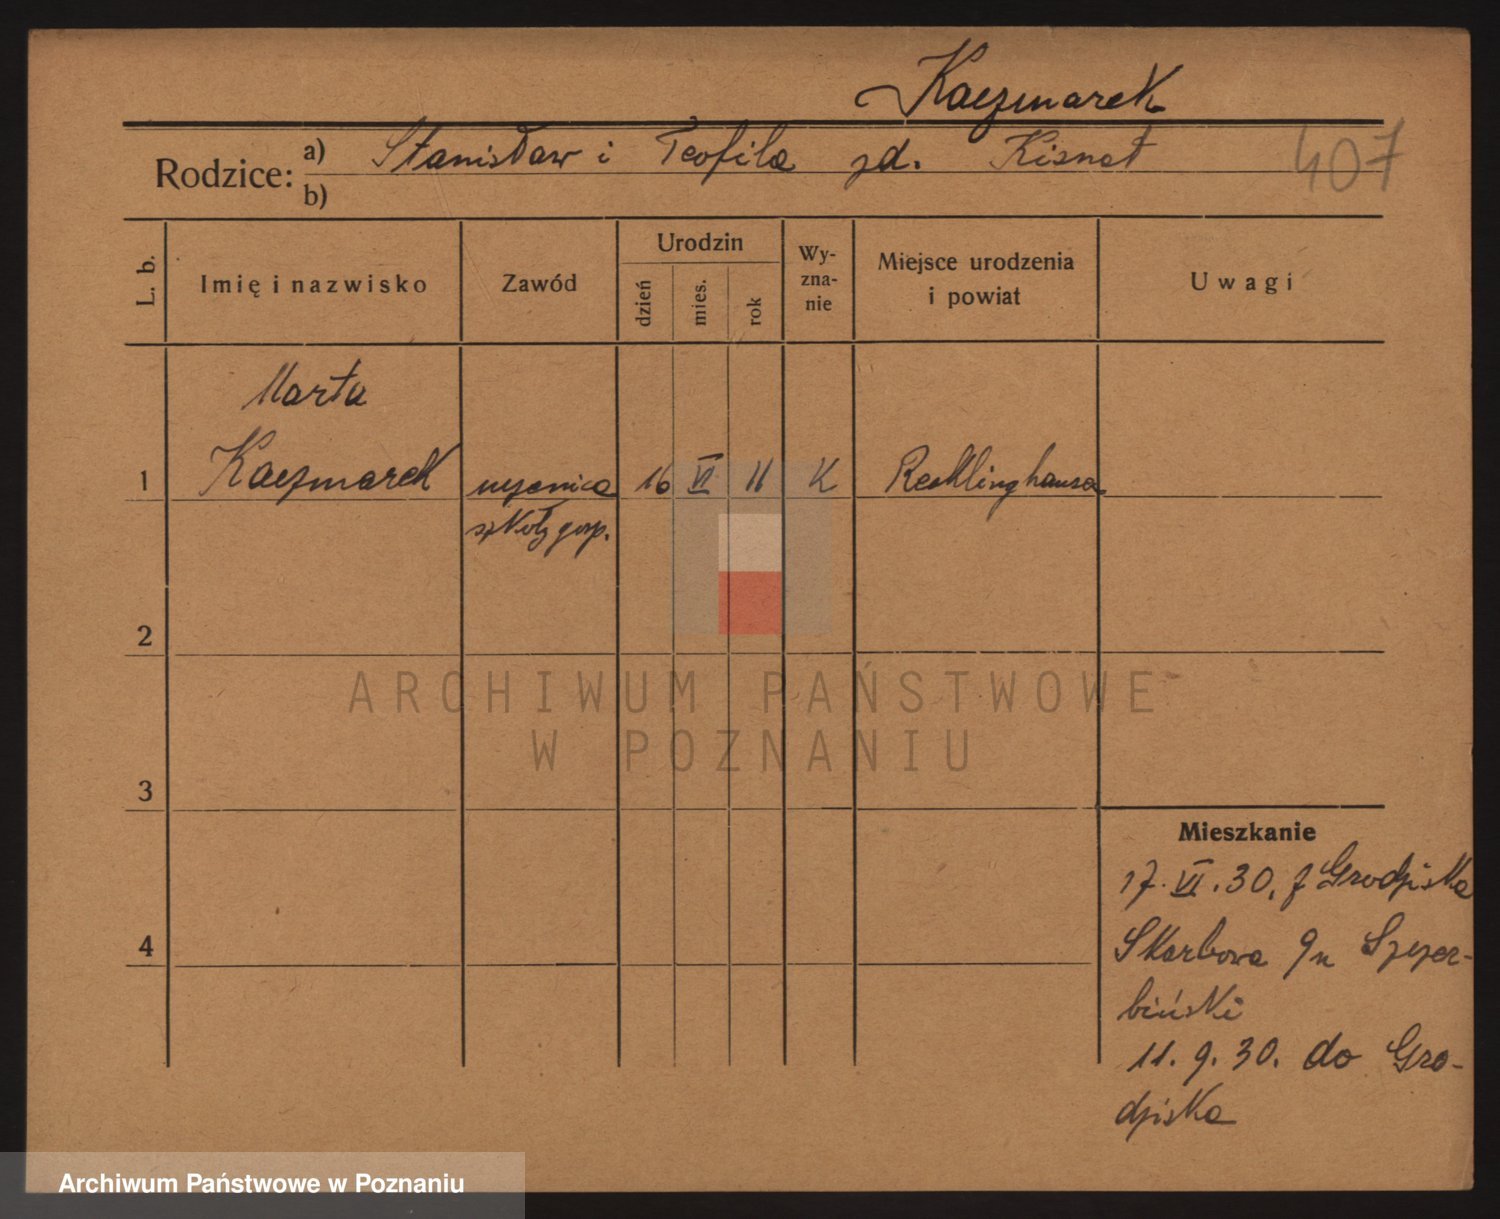 Kaczmarek
Rodzice: a) Stanisław i Teofila zd. Kisnat
407
b)
L. b.
Imię i nazwisko
Zawód
Urodzin
dzień
mies.
rok
Wy-
zna-
nie
Miejsce urodzenia
i powiat
Uwagi
Marta
1 Kaczmarek uczenica 16 VI 11 K Recklinghausen
szkoły gosp.
2
3
4
Mieszkanie
17.VI.30. z Grodziska
Skarbowa 9 u Szczer-
biński
11.9.30. do Gro-
dziska
ARCHIWUM PAŃSTWOWE
W POZNANIU
Archiwum Państwowe w Poznaniu